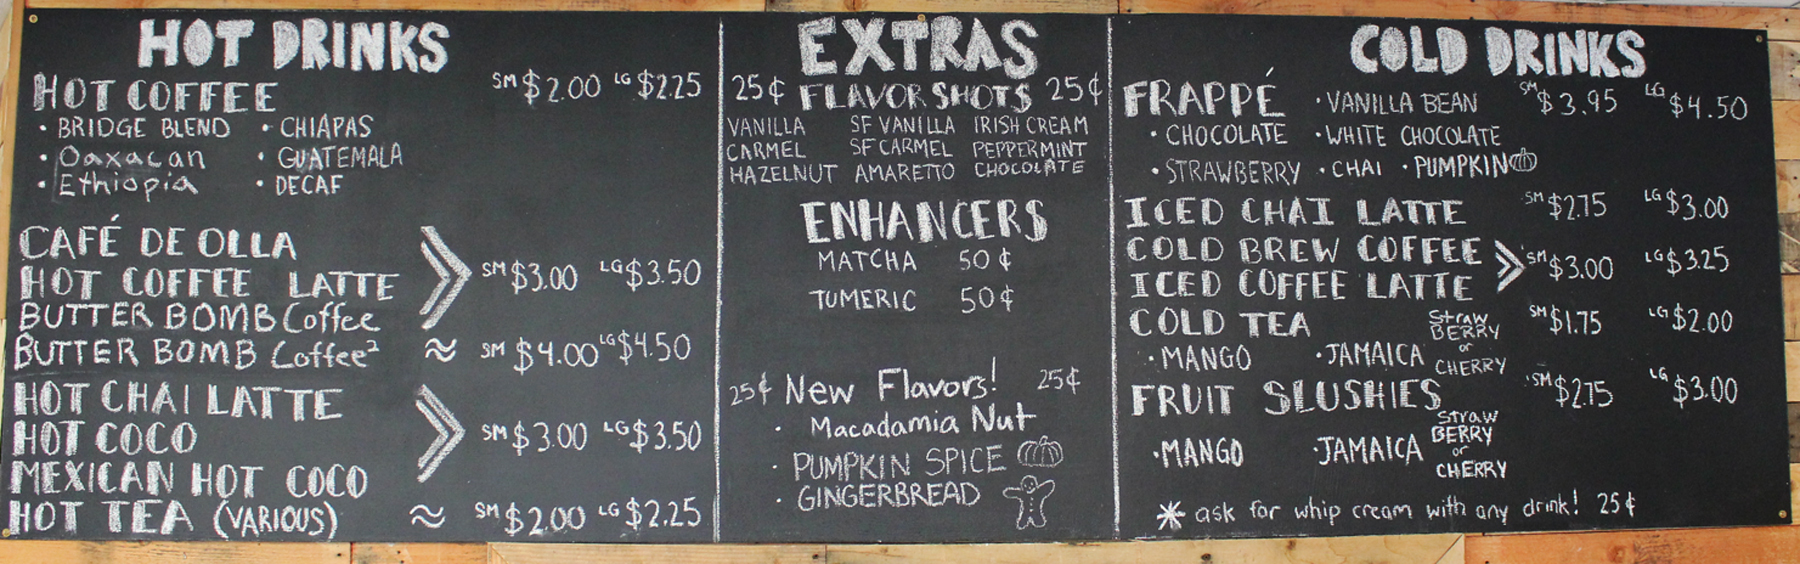 HOT DRINKS
HOT COFFEE SM $2.00 LG $2.25
• BRIDGE BLEND • CHIAPAS
• Oaxacan • GUATEMALA
• Ethiopia • DECAF
CAFÉ DE OLLA
HOT COFFEE LATTE SM $3.00 LG $3.50
BUTTER BOMB Coffee
BUTTER BOMB Coffee² ≈ SM $4.00 LG $4.50
HOT CHAI LATTE
HOT COCO SM $3.00 LG $3.50
MEXICAN HOT COCO
HOT TEA (VARIOUS) ≈ SM $2.00 LG $2.25
EXTRAS
25¢ FLAVOR SHOTS 25¢
VANILLA SF VANILLA IRISH CREAM
CARMEL SF CARMEL PEPPERMINT
HAZELNUT AMARETTO CHOCOLATE
ENHANCERS
MATCHA 50¢
TUMERIC 50¢
25¢ New Flavors! 25¢
• Macadamia Nut
• PUMPKIN SPICE
• GINGERBREAD
COLD DRINKS
FRAPPÉ • VANILLA BEAN SM $3.95 LG $4.50
• CHOCOLATE • WHITE CHOCOLATE
• STRAWBERRY • CHAI • PUMPKIN
ICED CHAI LATTE SM $2.75 LG $3.00
COLD BREW COFFEE SM $3.00 LG $3.25
ICED COFFEE LATTE
COLD TEA SM $1.75 LG $2.00
• MANGO • JAMAICA StrawBERRY or CHERRY
FRUIT SLUSHIES SM $2.75 LG $3.00
• MANGO • JAMAICA StrawBERRY or CHERRY
* ask for whip cream with any drink! 25¢